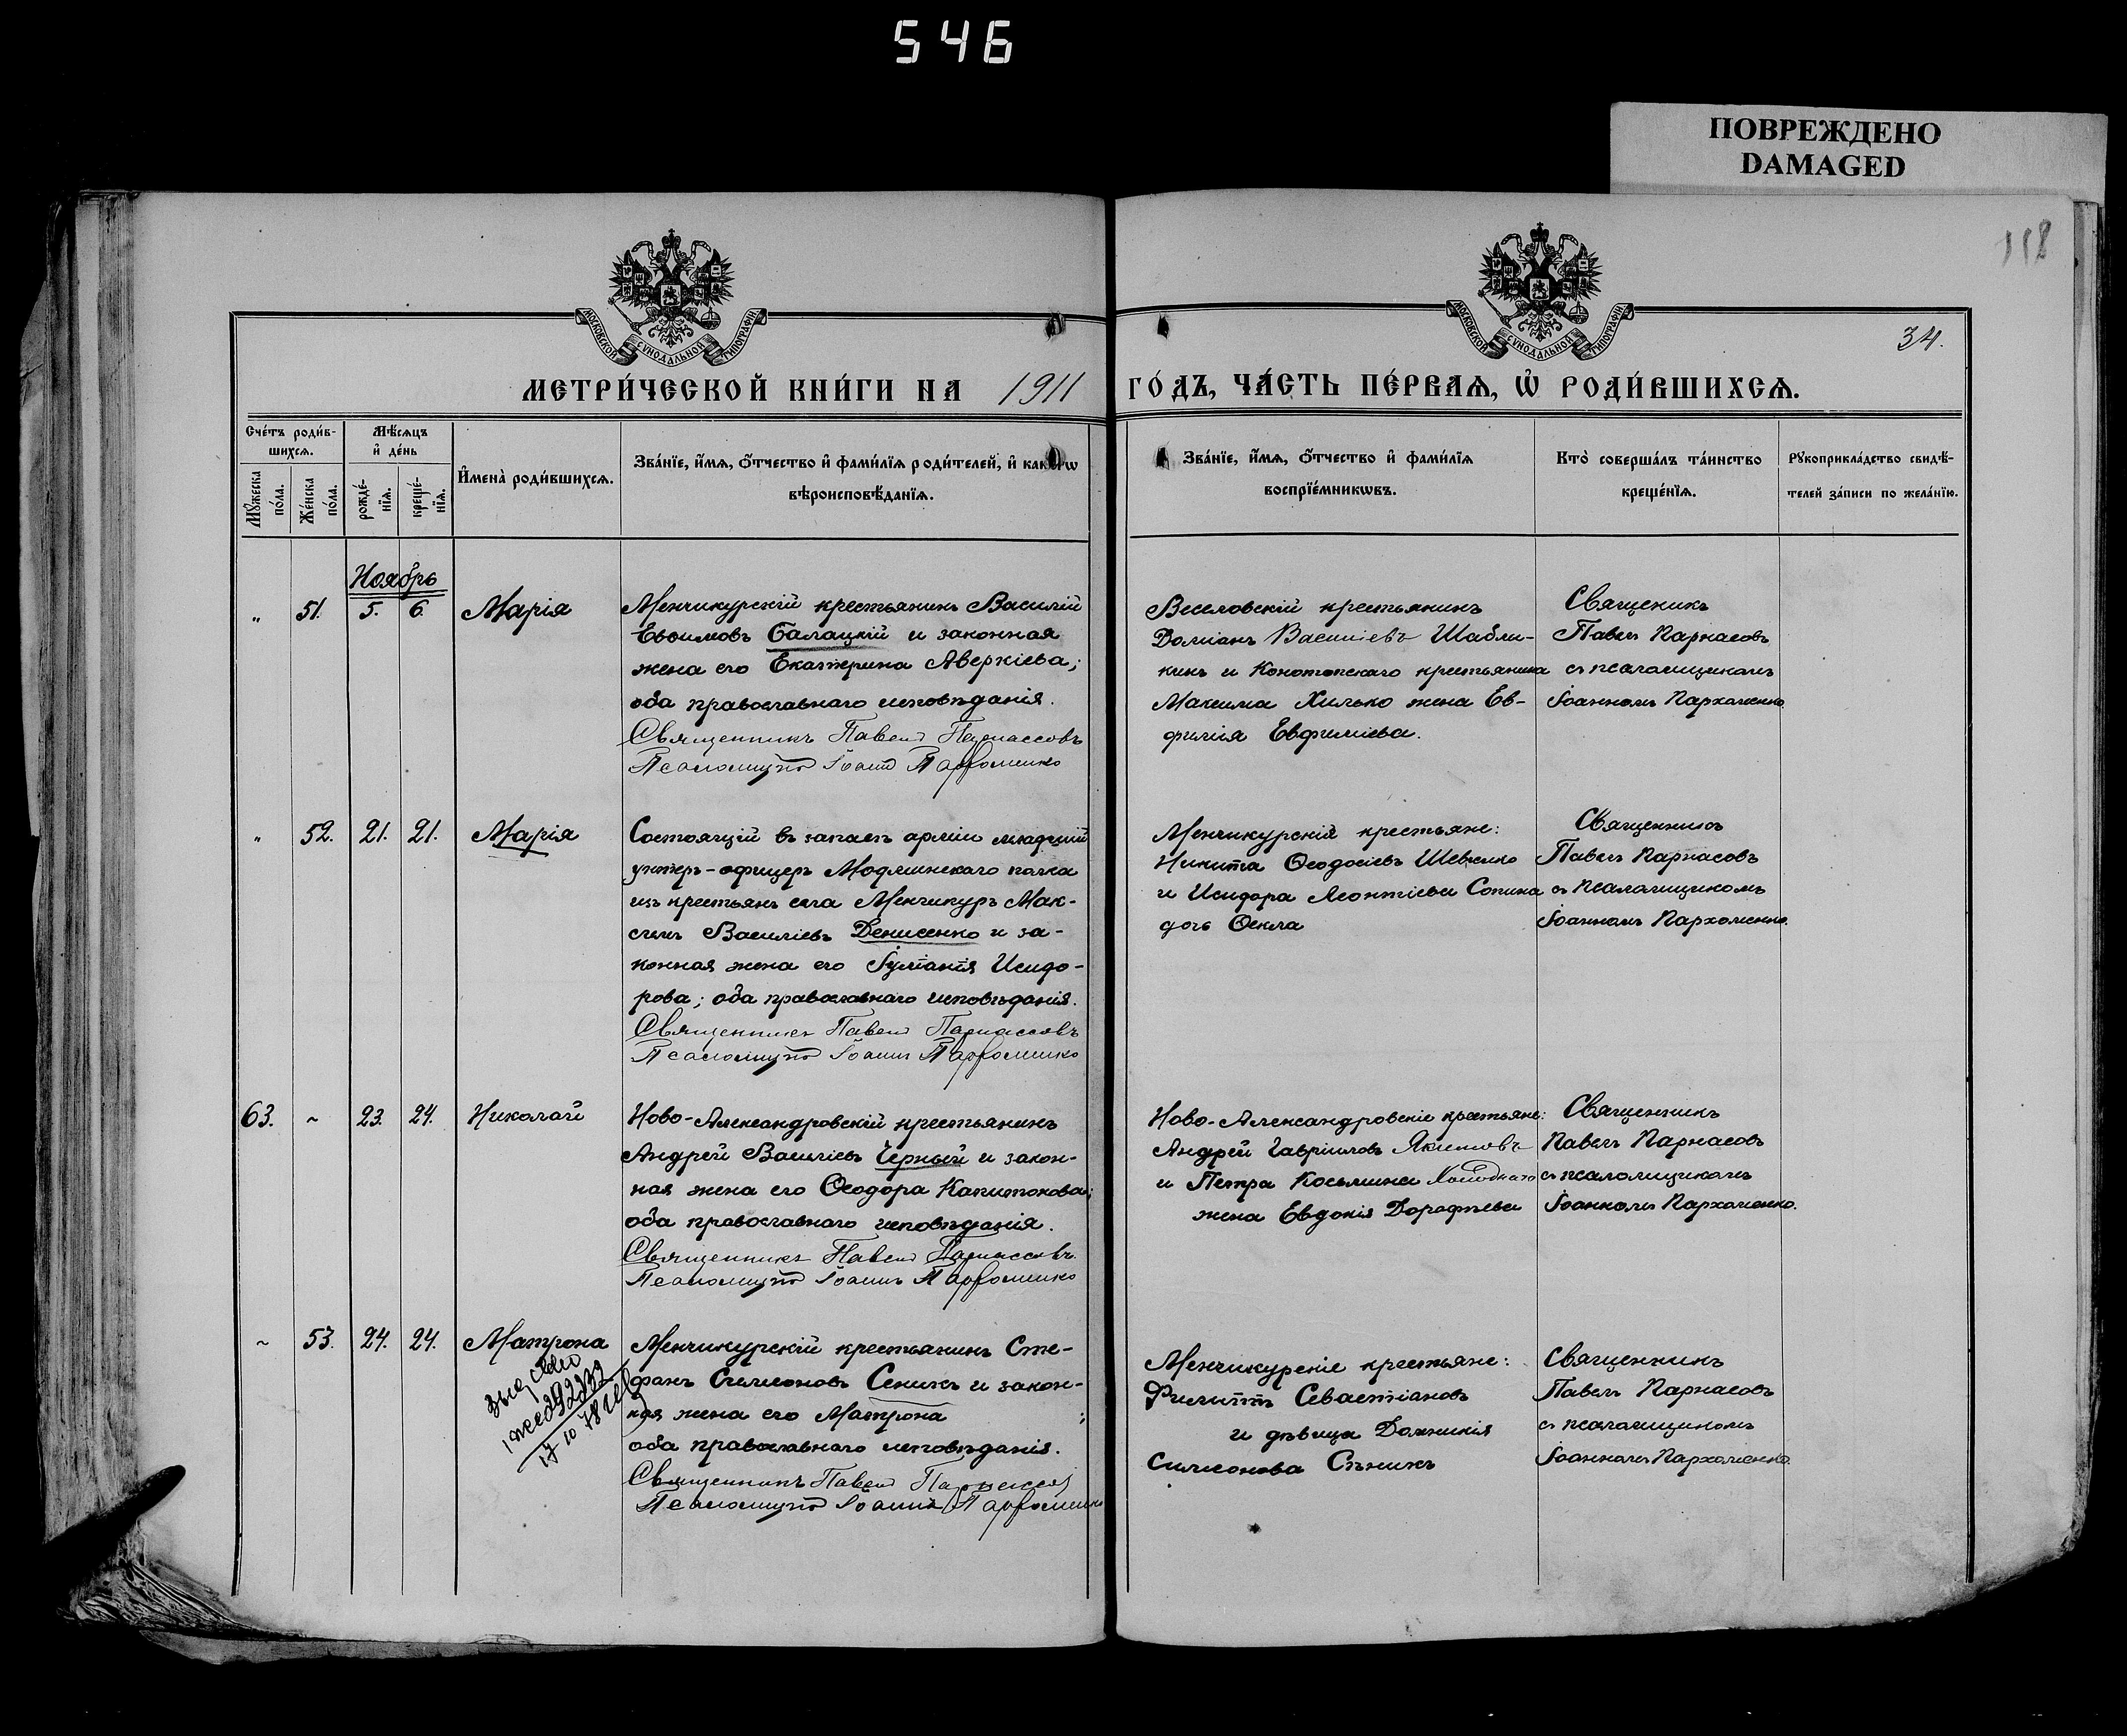 546
ПОВРЕЖДЕНО
DAMAGED
118
34.
МОСКОВСКОЙ СѴНОДАЛЬНОЙ ТИПОГРАФІИ
МОСКОВСКОЙ СѴНОДАЛЬНОЙ ТИПОГРАФІИ
МЕТРИ́ЧЕСКОЙ КНИ́ГИ НА 1911 ГО́ДЪ, ЧА́СТЬ ПЕ́РВАѦ, Ѡ҆ РОДИ́ВШИХСѦ.
Сче́тъ роди́в-
шихсѧ.
Мꙋ́жеска по́ла.
Же́нска по́ла.
Мѣ́сѧцъ
и҆ де́нь
рожде́-
нїѧ.
креще́-
нїѧ.
И҆мена̀ роди́вшихсѧ.
Зва́нїе, и҆́мѧ, ѻ҆́тчество и҆ фами́лїѧ роди́телей, и҆
вѣроисповѣ́данїѧ.
Зва́нїе, и҆́мѧ, ѻ҆́тчество и҆ фами́лїѧ
воспрїе́мникѡвъ.
Кто̀ соверша́лъ та́инство
креще́нїѧ.
Рꙋкоприкла́дство свидѣ́-
телей за́писи по жела́нїю.
Ноябрь
„ 51. 5. 6. Марія
Менчикурскій крестьянинъ Василій
Евѳимовъ Балацкій и законная
жена его Екатерина Аверкіева;
оба православнаго исповѣданія.
Священникъ Павелъ Парнассовъ
Псаломщикъ Іоаннъ Пархоменко
Веселовскій крестьянинъ
Даміанъ Василіевъ Шабли-
кинъ и Конотопскаго крестьянина
Максима Хилько жена Ев-
фимія Евфиміева.
Священикъ
Павелъ Парнасовъ
съ псаломщикомъ
Іоанномъ Пархоменко
„ 52. 21. 21. Марія
Состоящій въ запасѣ арміи младшій
унтеръ-офицеръ Модлинскаго полка
изъ крестьянъ села Менчикуръ Мак-
симъ Василіевъ Денисенко и за-
конная жена его Іуліанія Исидо-
рова; оба православнаго исповѣданія.
Священникъ Павелъ Парнассовъ
Псаломщикъ Іоаннъ Пархоменко
Менчикурскія крестьяне:
Никита Ѳеодосіевъ Шевченко
и Исидора Леонтіева Сопина
дочь Ѳекла
Священникъ
Павелъ Парнасовъ
съ псаломщикомъ
Іоанномъ Пархоменко.
63. ~ 23. 24. Николай
Ново-Александровскій крестьянинъ
Андрей Василіевъ Черный и закон-
ная жена его Ѳеодора Капитонова;
оба православнаго исповѣданія.
Священникъ Павелъ Парнассовъ
Псаломщикъ Іоаннъ Пархоменко
Ново-Александровскіе крестьяне:
Андрей Гавріиловъ Якимовъ
и Петра Космина
жена Евдокія Дорофѣева
Священникъ
Павелъ Парнасовъ
съ псаломщикомъ
Іоанномъ Пархоменко.
~ 53. 24. 24. Матрона
Менчикурскій крестьянинъ Сте-
фанъ Симеоновъ Сеникъ и закон-
ная жена его Матрона ;
оба православнаго исповѣданія.
Священникъ Павелъ Парнассовъ
Псаломщикъ Іоаннъ Пархоменко
Менчикурскіе крестьяне:
Филиппъ Севастіановъ
и дѣвица Домникія
Симеонова Сѣникъ
Священникъ
Павелъ Парнасовъ
съ псаломщикомъ
Іоанномъ Пархоменко